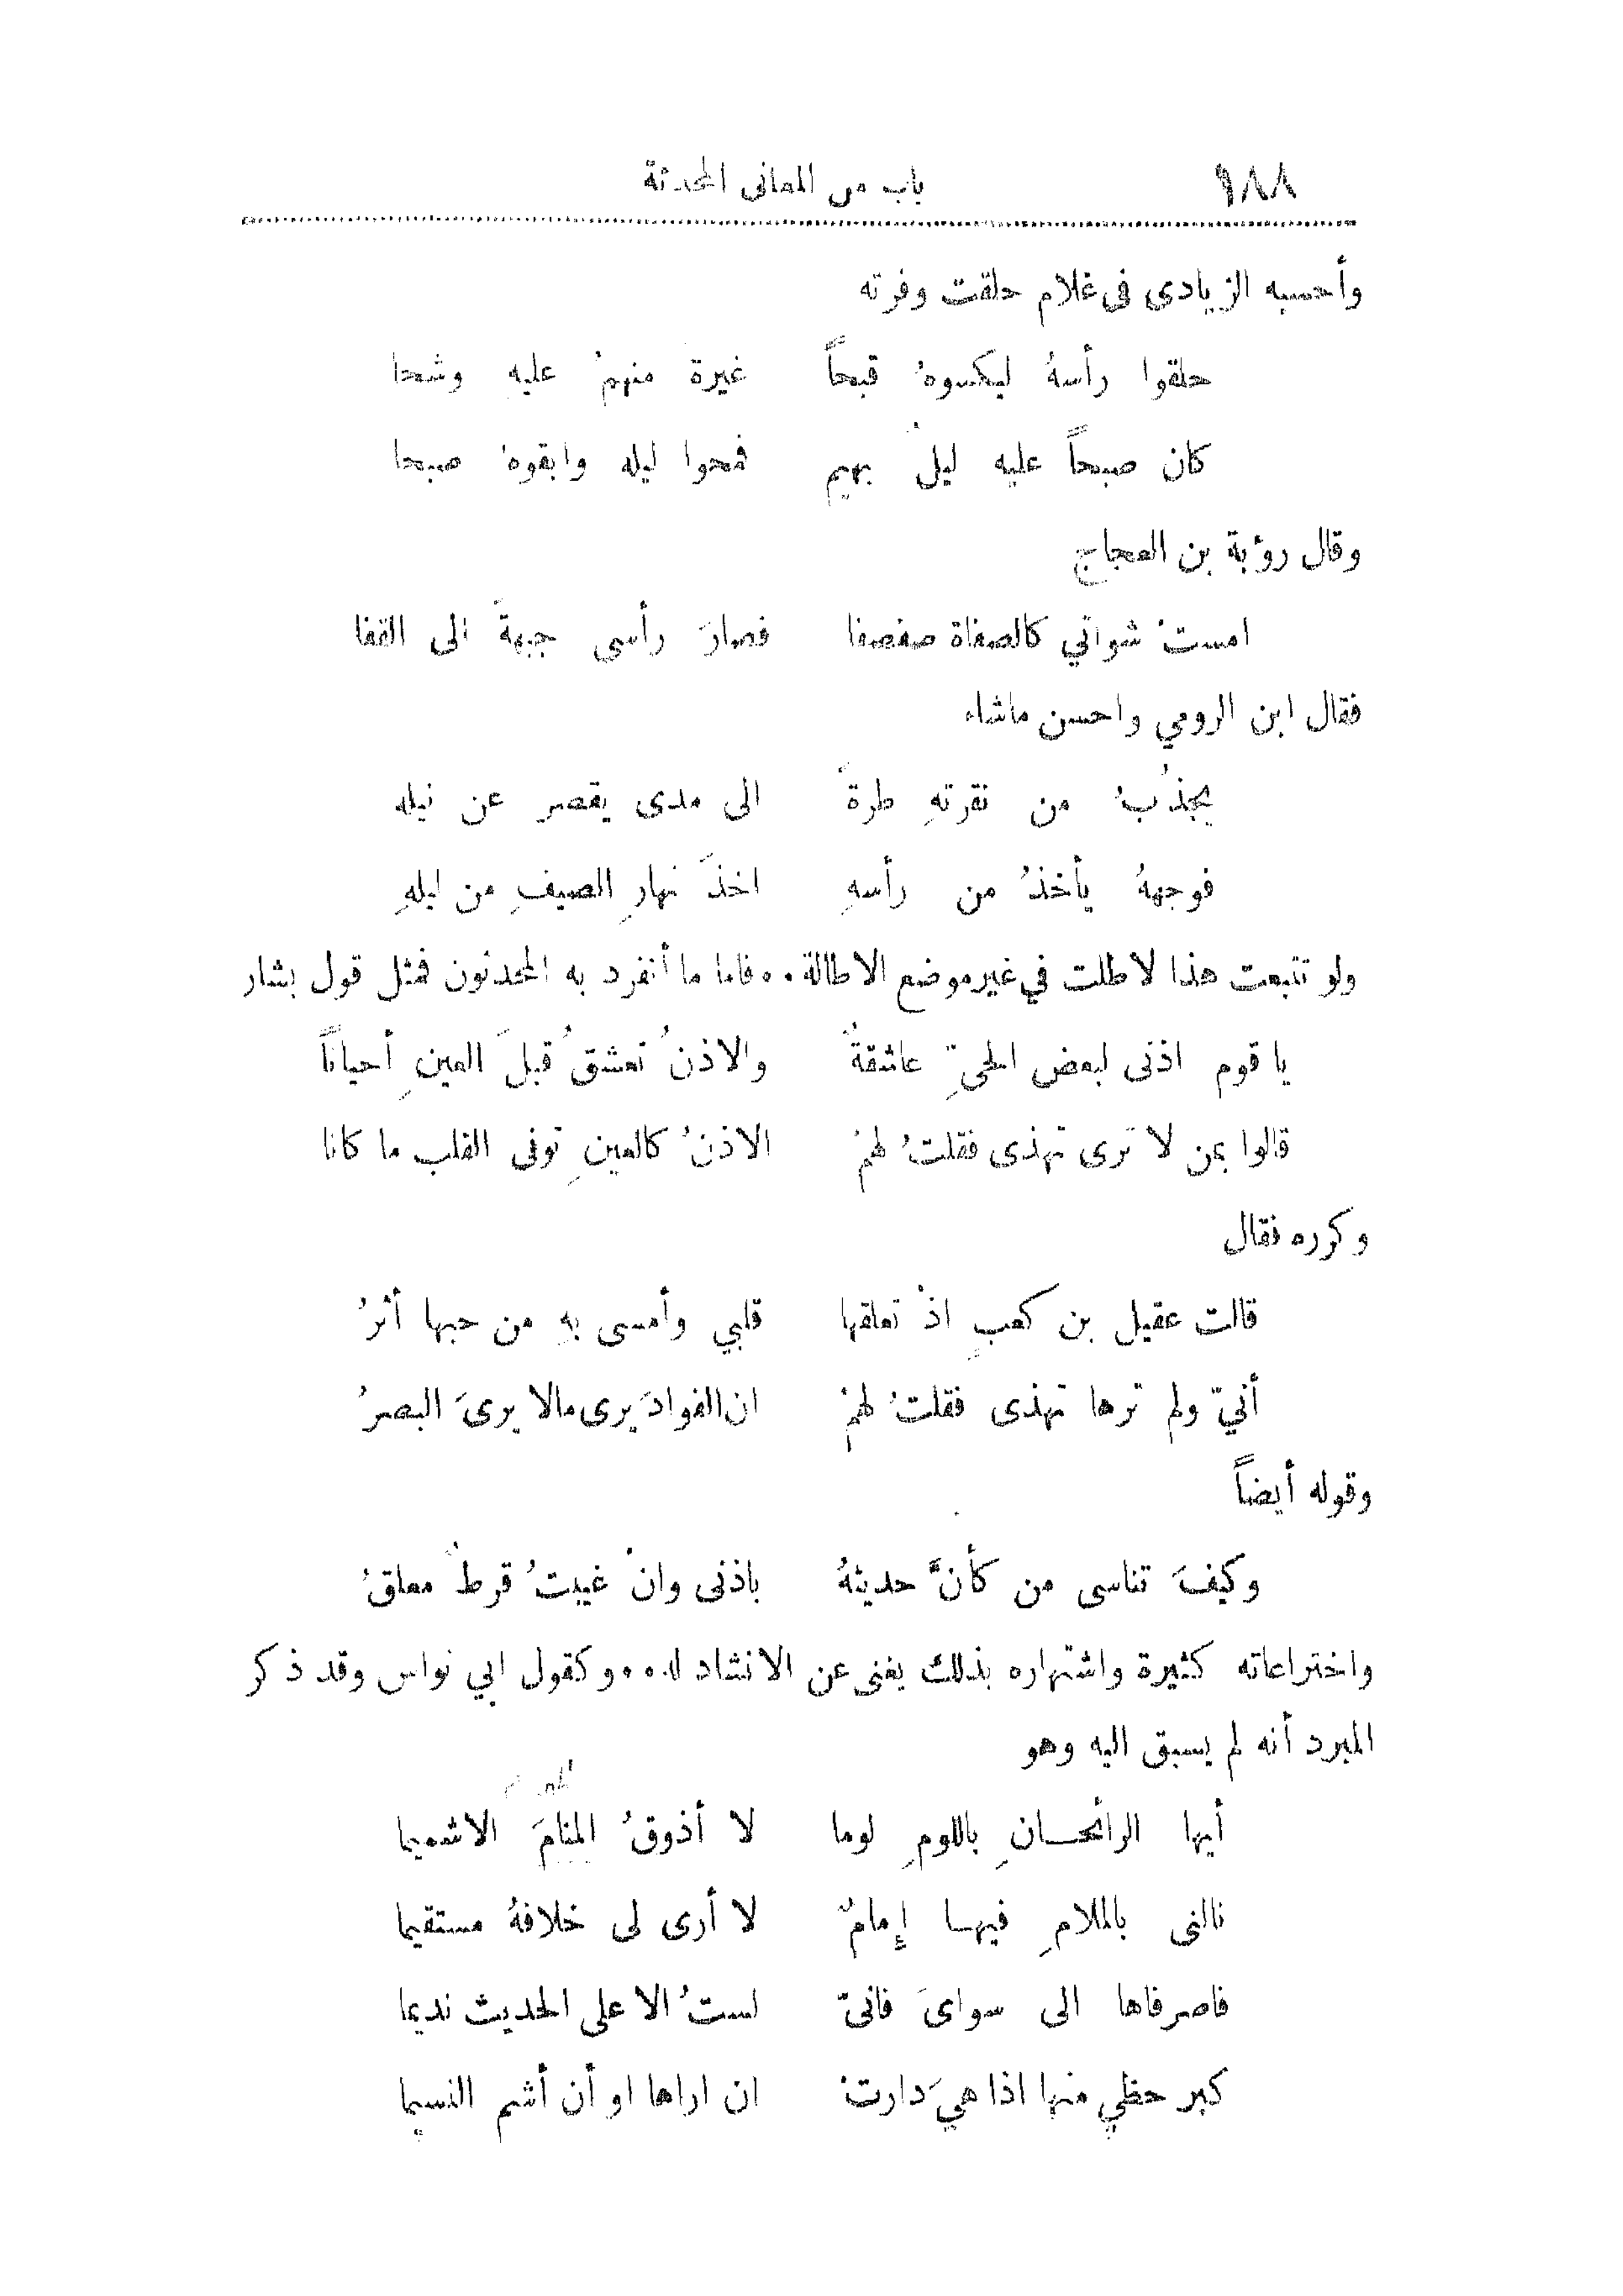 ١٨٨ باب من المعانى المحدثة
وأحسبه الزيادى فى غلام حلقت وفرته
حلقوا رأسهُ ليكسوهُ قبحاً غيرة منهمْ عليه وشحا
كان صبحاً عليه ليلٌ بهيم فمحوا ليله وابقوهُ صبحا
وقال رؤبة بن العجاج
امستْ شواتي كالصفاة صفصفا فصارَ رأسى جبهةً الى القفا
فقال ابن الرومي واحسن ماشاء
يجذبُ من نقرتهِ طرةً الى مدى يقصر عن نيله
فوجههُ يأخذُ من رأسهِ اخذَ نهارِ الصيفِ من ليلهِ
ولو تتبعت هذا لاطلت في غير موضع الاطالة ٠٠ فاما ما أنفرد به المحدثون فمثل قول بشار
يا قوم اذنى لبعض الحىِّ عاشقةٌ والاذنُ تعشقُ قبلَ العينِ أحياناً
قالوا بمن لا ترى تهذى فقلتُ لهمْ الاذنُ كالعينِ توفى القلب ما كانا
وكرره فقال
قالت عقيل بن كعبٍ اذْ تعلقها قلبي وأمسى بهِ من حبها أثرُ
أنيّ ولم ترها تهذى فقلتُ لهمْ ان الفوادَ يرى مالا يرىَ البصرُ
وقوله أيضاً
وكيفَ تناسى من كأنَّ حديثهُ باذنى وانْ غيبتُ قرطٌ معلقُ
واختراعاته كثيرة واشتهاره بذلك يغنى عن الانشاد له ٠٠ وكقول ابي نواس وقد ذكر
المبرد أنه لم يسبق اليه وهو
أيها الرائحـانِ باللومِ لوما لا أذوقُ المنامَ الاشميما
نالنى بالملامِ فيهـا إِمامٌ لا أرى لى خلافهُ مستقيما
فاصرفاها الى سواىَ فانىّ لستُ الا على الحديث نديما
كبر حظي منها اذا هيَ دارتْ ان اراها او أن أشم النسيما